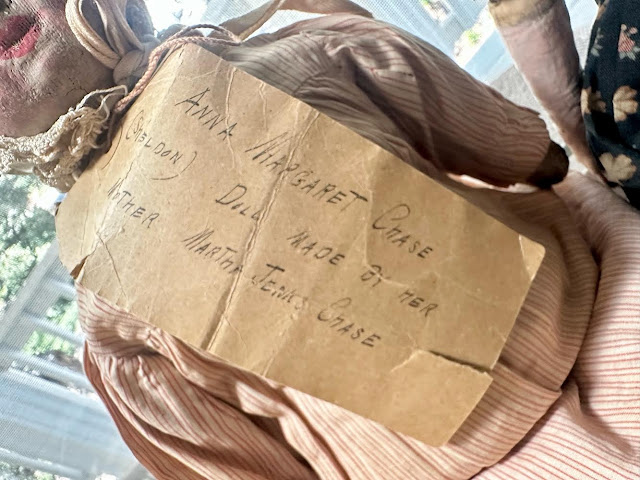 ANNA MARGARET CHASE
(SHELDON) DOLL MADE BY HER
MOTHER MARTHA JENKS CHASE